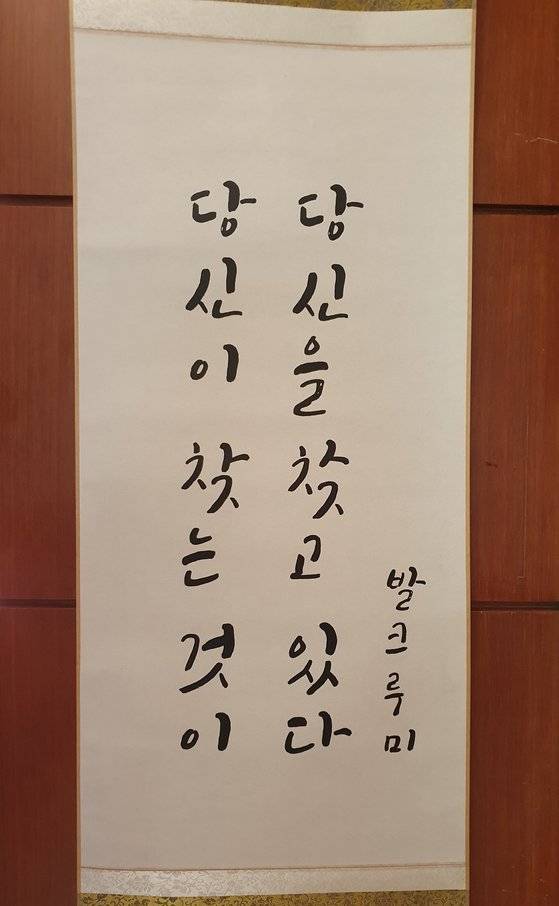 당신이 찾는 것이
당신을 찾고 있다
발크루미